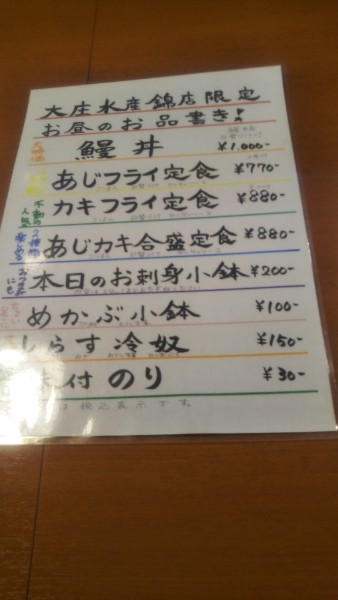 大庄水産錦店限定
お昼のお品書き!
鰻丼 ¥1,000-
あじフライ定食 ¥770-
不動の人気 カキフライ定食 ¥880-
2種楽める あじカキ合盛定食 ¥880-
おつまみにも 本日のお刺身小鉢 ¥200-
めかぶ小鉢 ¥100-
しらす冷奴 ¥150-
味付のり ¥30-
税込表示です。